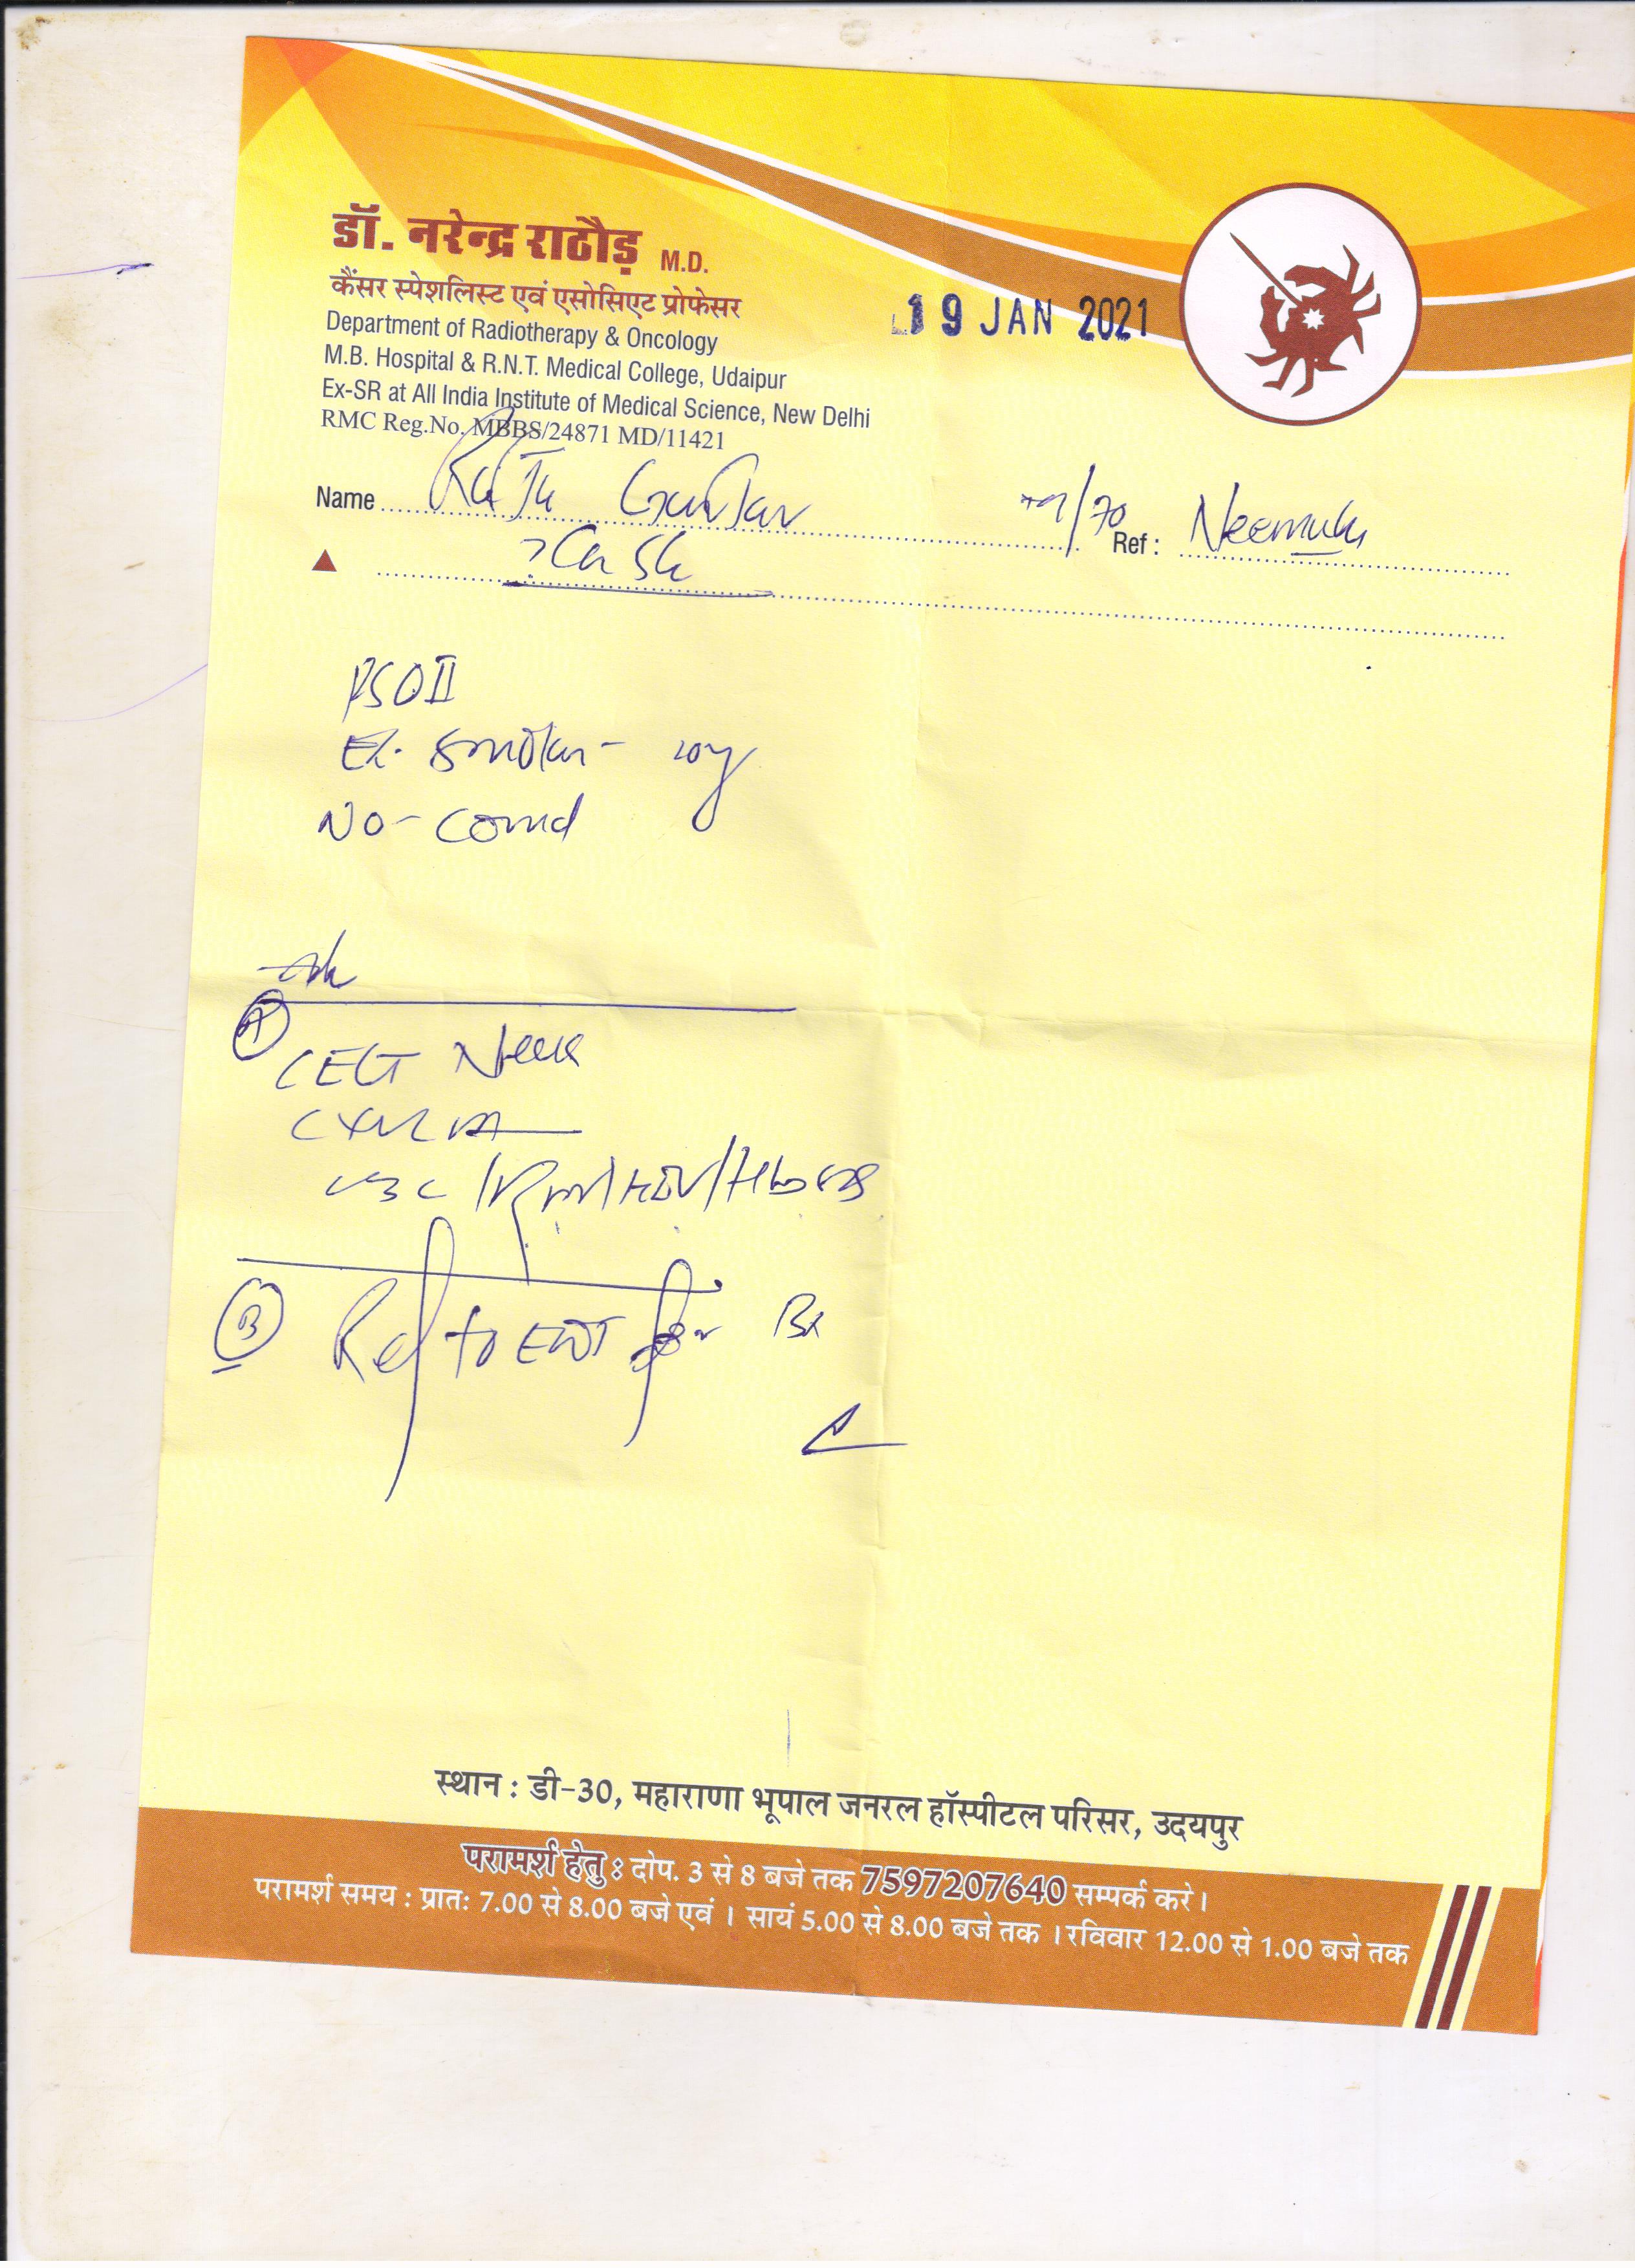 डॉ. नरेन्द्र राठौड़ M.D.
कैंसर स्पेशलिस्ट एवं एसोसिएट प्रोफेसर
Department of Radiotherapy & Oncology
M.B. Hospital & R.N.T. Medical College, Udaipur
Ex-SR at All India Institute of Medical Science, New Delhi
RMC Reg.No. MBBS/24871 MD/11421
19 JAN 2021
Name /70 Ref :
PS0II
Ex. smoker - 20y
No -
Adv
A
CECT Neck
CXR PA
CBC / /HIV/HbsAg
B Ref to ENT for Bx
स्थान : डी-30, महाराणा भूपाल जनरल हॉस्पीटल परिसर, उदयपुर
परामर्श हेतु : दोप. 3 से 8 बजे तक 7597207640 सम्पर्क करे।
परामर्श समय : प्रातः 7.00 से 8.00 बजे एवं । सायं 5.00 से 8.00 बजे तक । रविवार 12.00 से 1.00 बजे तक